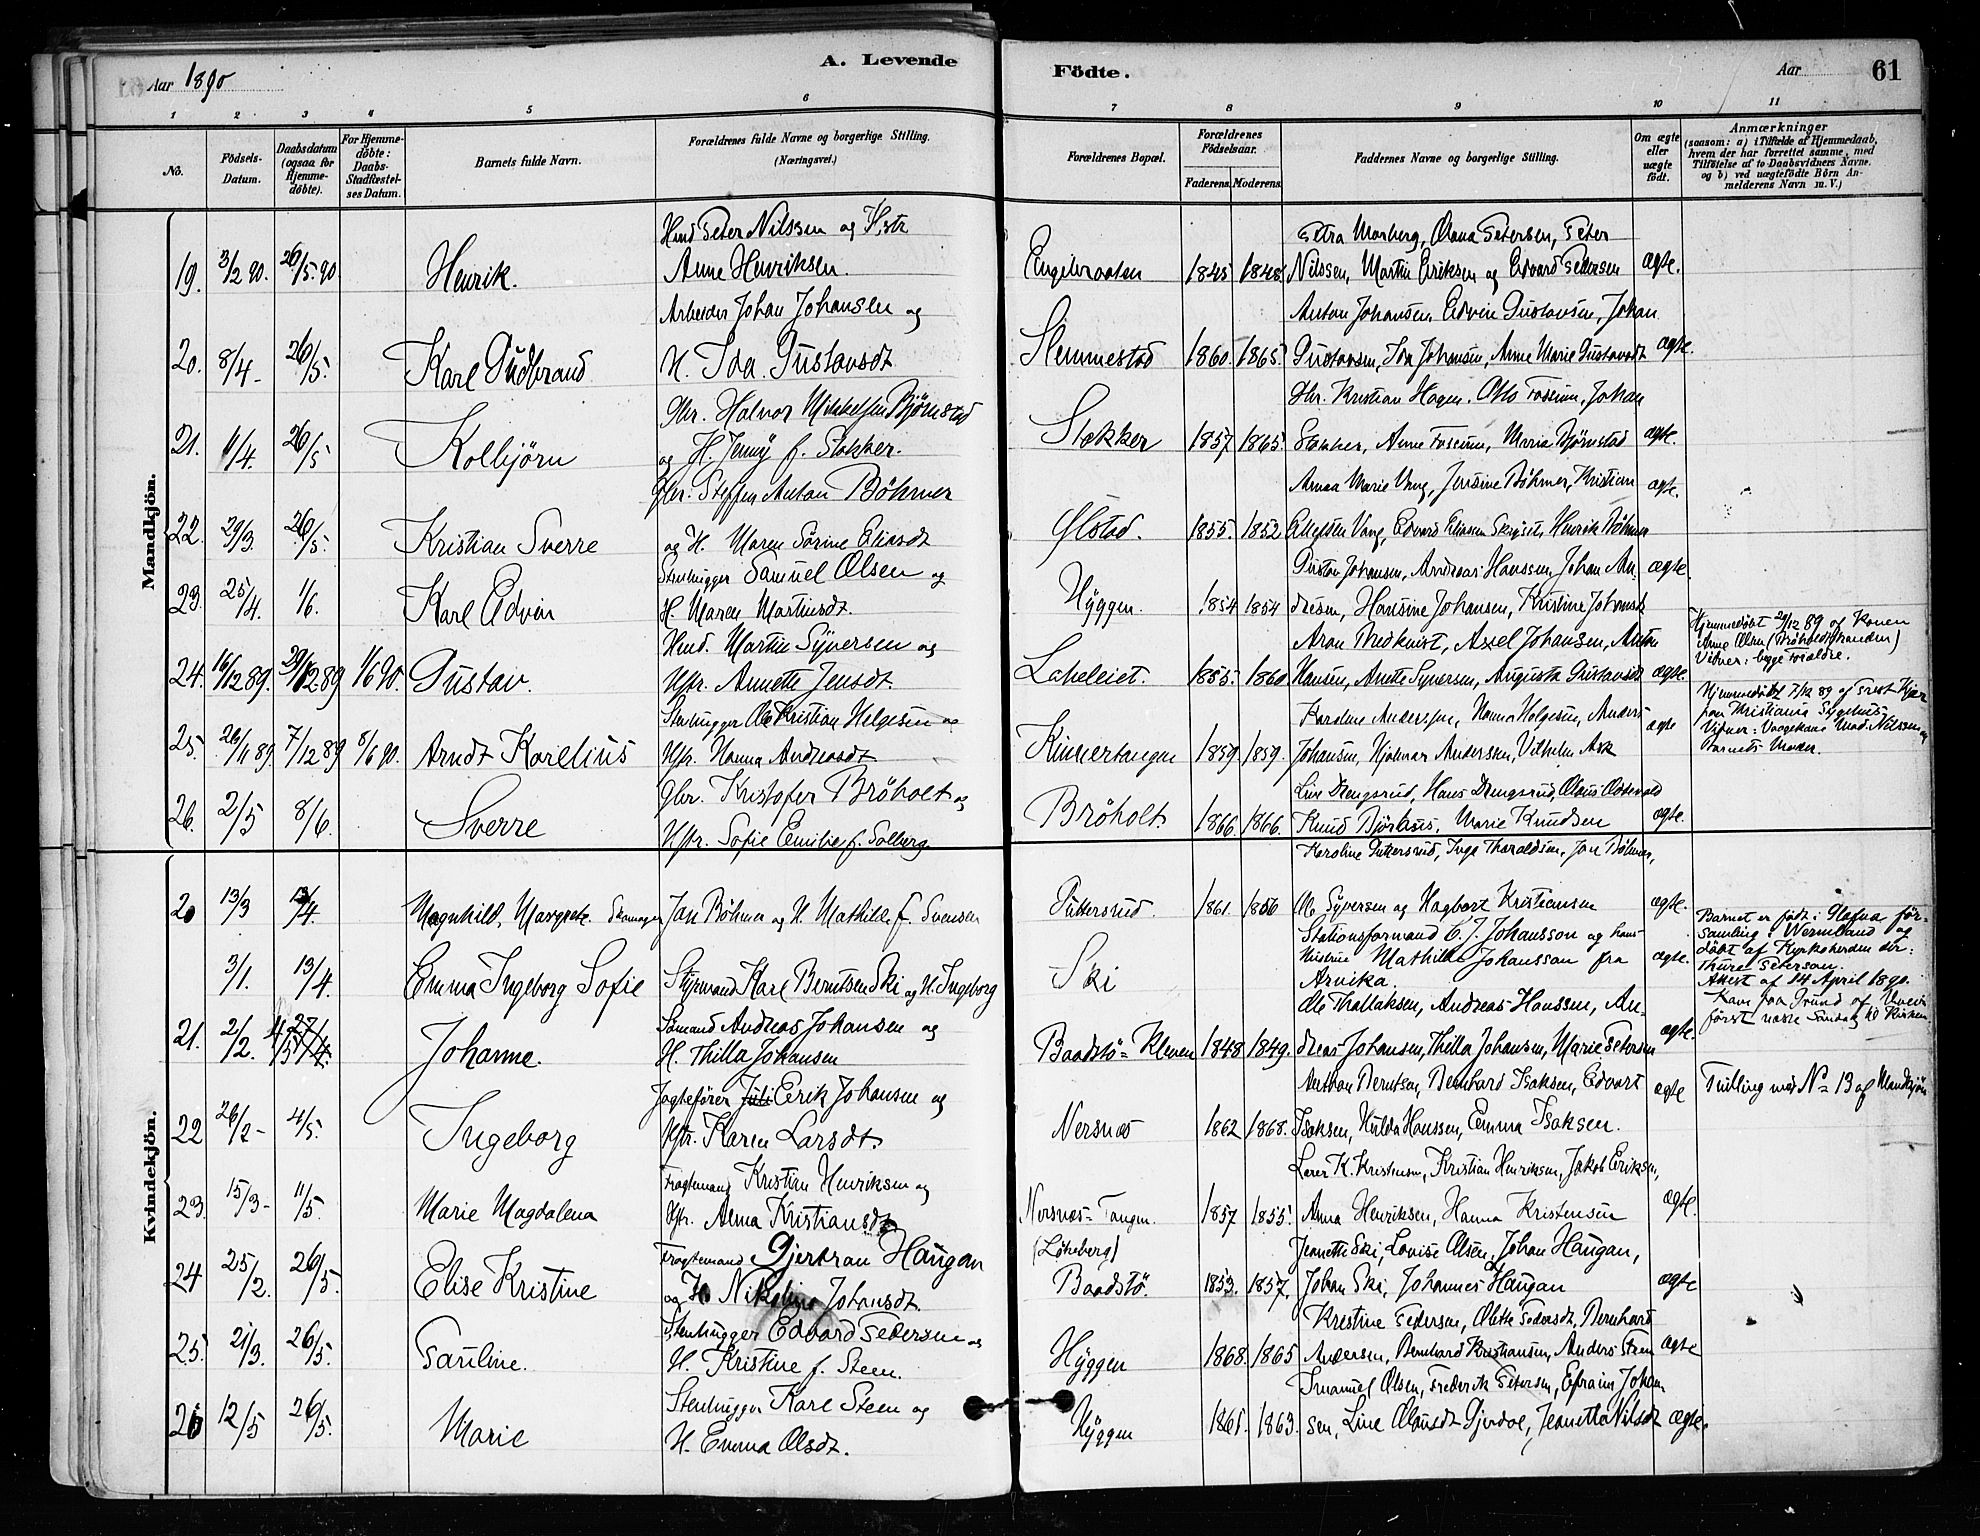 Aar 1890
A. Levende
Födte.
Aar
61
1 2 3 4 5 6 7 8 9 10 11
No.
Födsels-Datum.
Daabsdatum (ogsaa for Hjemme-döbte).
For Hjemme-döbte: Daabs-Stadfæstel-ses Datum.
Barnets fulde Navn.
Forældrenes fulde Navne og borgerlige Stilling. (Næringsvei.)
Forældrenes Bopæl.
Forældrenes Födselsaar.
Faderens. Moderens.
Faddernes Navne og borgerlige Stilling.
Om ægte eller uægte födt.
Anmærkninger
(saasom: a) i Tilfælde af Hjemmedaab, hvem der har forrettet samme, med Tilföielse af to Daabsvidners Navne. og b) ved uægtefödte Börn An-melderens Navn m. V.)
Mandkjön.
19. 3/2 90. 26/5 90 Henrik. Peter Nilssen og Anne Henriksen. Engebraaten 1845 1848 Petra Marberg, Olava Petersen, Peter
Nilssen, Martin Eriksen og Edvard Pedersen ægte.
20. 8/4 26/5. Karl Gudbrand Arbeider Johan Johansen og
H. Ida Gustavsdt Slemmestad 1860 1865 Anton Johansen, Edvin Gustavsen, Johan
Gustavsen, Ida Johansen, Anne Marie Gustavsdt ægte.
21. 1/4. 26/5 Kolbjörn Gbr. Halvor Mikkelsen Bjørnstad
og H. Jenny f. Stokker. Stokker 1857 1865. Gbr. Kristian Hagen, Otto Fossum, Johan
Stokker, Anne Fossum, Maria Bjørnstad ægte.
22. 29/3. 26/5. Kristian Sverre Gbr. Steffen Anton Böhmer
og H. Maren Sörine Eliasdt Ølstad. 1855. 1852 Anna Marie Vang, Jensine Böhmer, Kristian
Ellefsen Vang, Edvard Eliassen, Henrik Böhmer ægte.
23. 25/4. 1/6. Karl Edvin Stenhugger Samuel Olsen og
H. Maren Martinsdt. Hyggen. 1854 1854 Gustav Johansen, Andreas Hanssen, Johan An-
dresen, Hansine Johansen, Kristine Johansdt ægte.
24. 16/12 89. 29/12 89 1/6 90. Gustav. Husd. Martin Syversen og
Hstr. Annette Jensdt. Lakeleiet. 1855. 1860 Axel Johansen, Anton
Hansen, Anette Syversen, Augusta Gustavsdt ægte.
Hjemmedöbt 29/12 89 af Konen
Anne Olsen (Bröholdtstranden)
Vidner: begge Foreldre.
25. 26/11 89. 7/12 89 8/6 90. Arndt Karelius Stenhugger Ole Kristian Helgesen og
Hstr. Hanna Andreasdt Kinnertangen 1859. 1859. Karoline Andersen, Hanna Helgesen, Anders
Johansen, Hjalmar Andersen, Vilhelm Ask ægte
Hjemmedöbt 7/12 89 af Prest Kjær
paa Christiania Sygehus.
Vidner: Vaagekone Mad. Nilssen og
Barnets Moder.
26. 2/5 8/6. Sverre Gbr. Kristofer Bröholt og
Hstr. Sofie Emilie f. Solberg Bröholt. 1866. 1866. Line Drengsrud, Hans Drengsrud,
Knud Björkås, Marie Knudsen ægte.
Kvindekjön.
20 13/3 13/4 Magnhild, Margrete. Skomager Jan Böhmer og H. Mathilde f. Svensen Puttersrud. 1861. 1856 Karoline Puttersrud, Inga Tharaldsen, Jan Böhmer,
Ole Syversen og Hagbart Kristiansen ægte.
3/1. 13/4. Emma Ingeborg Sofie Styrmand Karl Berntsen Ski og H. Ingeborg Ski Stationsformand C. J. Johansson og hans
Hustru Mathilda Johansson fra
Arvika. ægte.
Barnet er födt i Glafva för-
samling i Wermland og
döbt af Kyrkoherden der:
Thure Peterson.
Attest af 14 April 1890.
21. 2/2. 4/5 27/4. Johanne. Sömand Andreas Johansen og
H. Thilla Johansen Baadstö-Kleven 1848 1849. Ole Thollaksen, Andreas Hanssen, An-
dreas Johansen, Thilla Johansen, Marie Petersen ægte.
Kam fra Grund af Uveir
först næste Söndag til Kirken.
22 26/2- 4/5. Ingeborg Jagtefører Juli Erik Johansen og
Hstr. Karen Larsdt. Nersnæs 1862 1868. Anthon Berntsen, Bernhard Isaksen, Edvart
Isaksen, Hulda Hanssen, Emma Isaksen. ægte
Tvilling med No 13 af Mandkjön
23. 15/3- 11/5. Marie Magdalena Fragtemand Kristian Henriksen og
Hstr. Anna Kristiansdt Nersnæs-Tangen. (Løkeberg) 1857 1855. Lærer K. Kristensen, Kristian Henriksen, Jakob Eriksen,
Anna Henriksen, Hanna Kristensen ægte.
24 25/2. 26/5. Elise Kristine Fragtemand Gjertran Haugan
og H. Nikoline Johansdt. Baadstö. 1853. 1857. Jeanette Ski, Lovise Olsen, Johan Haugan,
Johan Ski, Johannes Haugan ægte
25. 21/3. 26/5. Pauline. Stenhugger Edvard Pedersen og
H. Kristine f. Steen. Hyggen 1868. 1865 Kristine Pedersen, Olette Pedersdt, Bernhard
Andersen, Bernhard Kristiansen, Anders Steen ægte
26 12/5 26/5. Marie Stenhugger Karl Steen og
H. Emma Olsdt. Hyggen 1861. 1863. Emanuel Olsen, Frederik Petersen, Efraim Johan-
sen, Line Olausdt Gjerdal, Jeanette Nilsdt ægte.